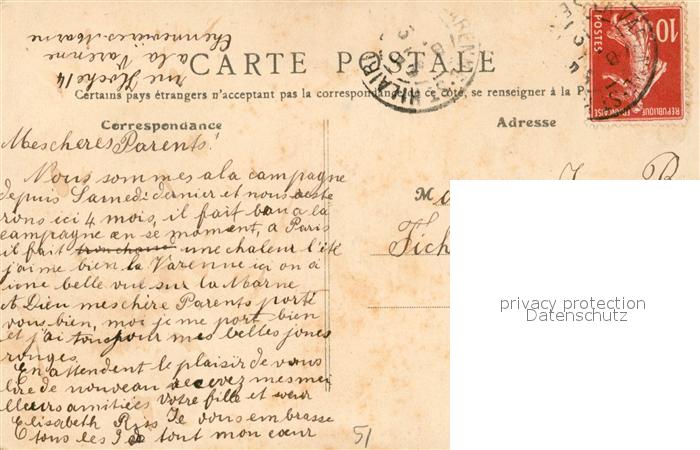 rue Hoche 14
a la Varenne
Chennevières. Marne
CARTE POSTALE
Certains pays étrangers n'acceptant pas la correspondance de ce côté, se renseigner à la P
Correspondance
Adresse
Mes cheres Parents!
Nous sommes a la campagne
depuis Samedi dernier et nous reste
rons ici 4 mois, il fait bau a la
campagne en se moment, a Paris
il fait une chaleur l'été
j'aime bien la Varenne ici on à
une belle vue sur la Marne
A Dieu mes chère Parents porté
vous bien, moi je me port bien
et j'ai toujour mes belles joues
rouges.
En attendent le plaisir de vous
lire de nouveau recevez mes mei
lleurs amitiées votre fille et sœur
Elisabeth Riss Je vous embrasse
tous les 3 de tout mon cœur
51
M
Fich
10
POSTES
REPUBLIQUE FRANÇAISE
ST HILAIRE
privacy protection
Datenschutz